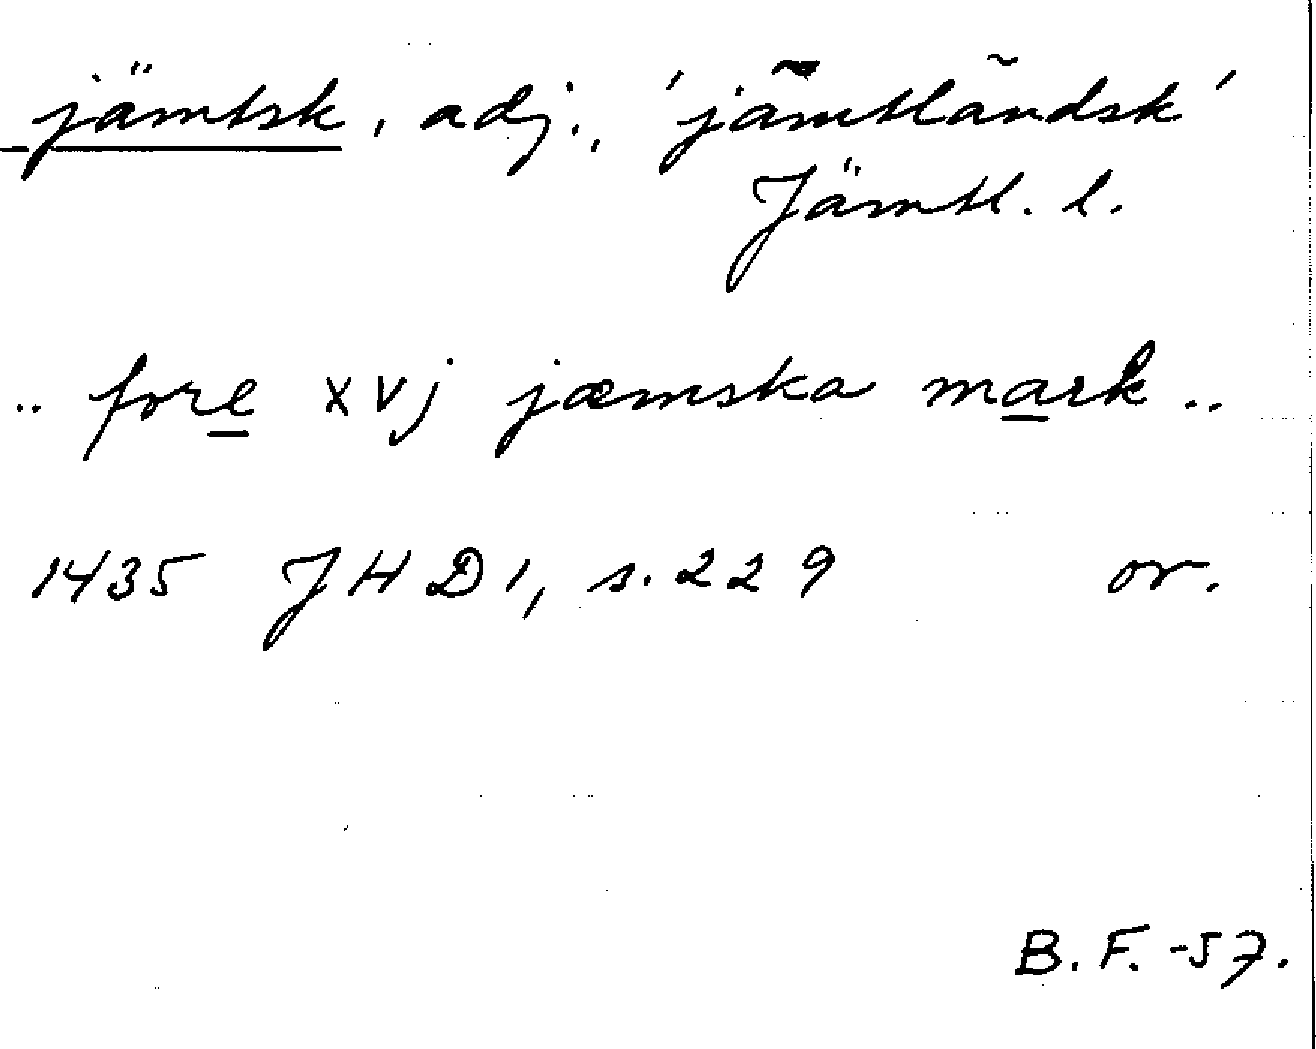 jämtsk, adj., 'jämtländsk'
Jämtl. l.
.. fore xvj jæmska mark ..
1435 JHD 1, s. 229 or.
B. F. -57.